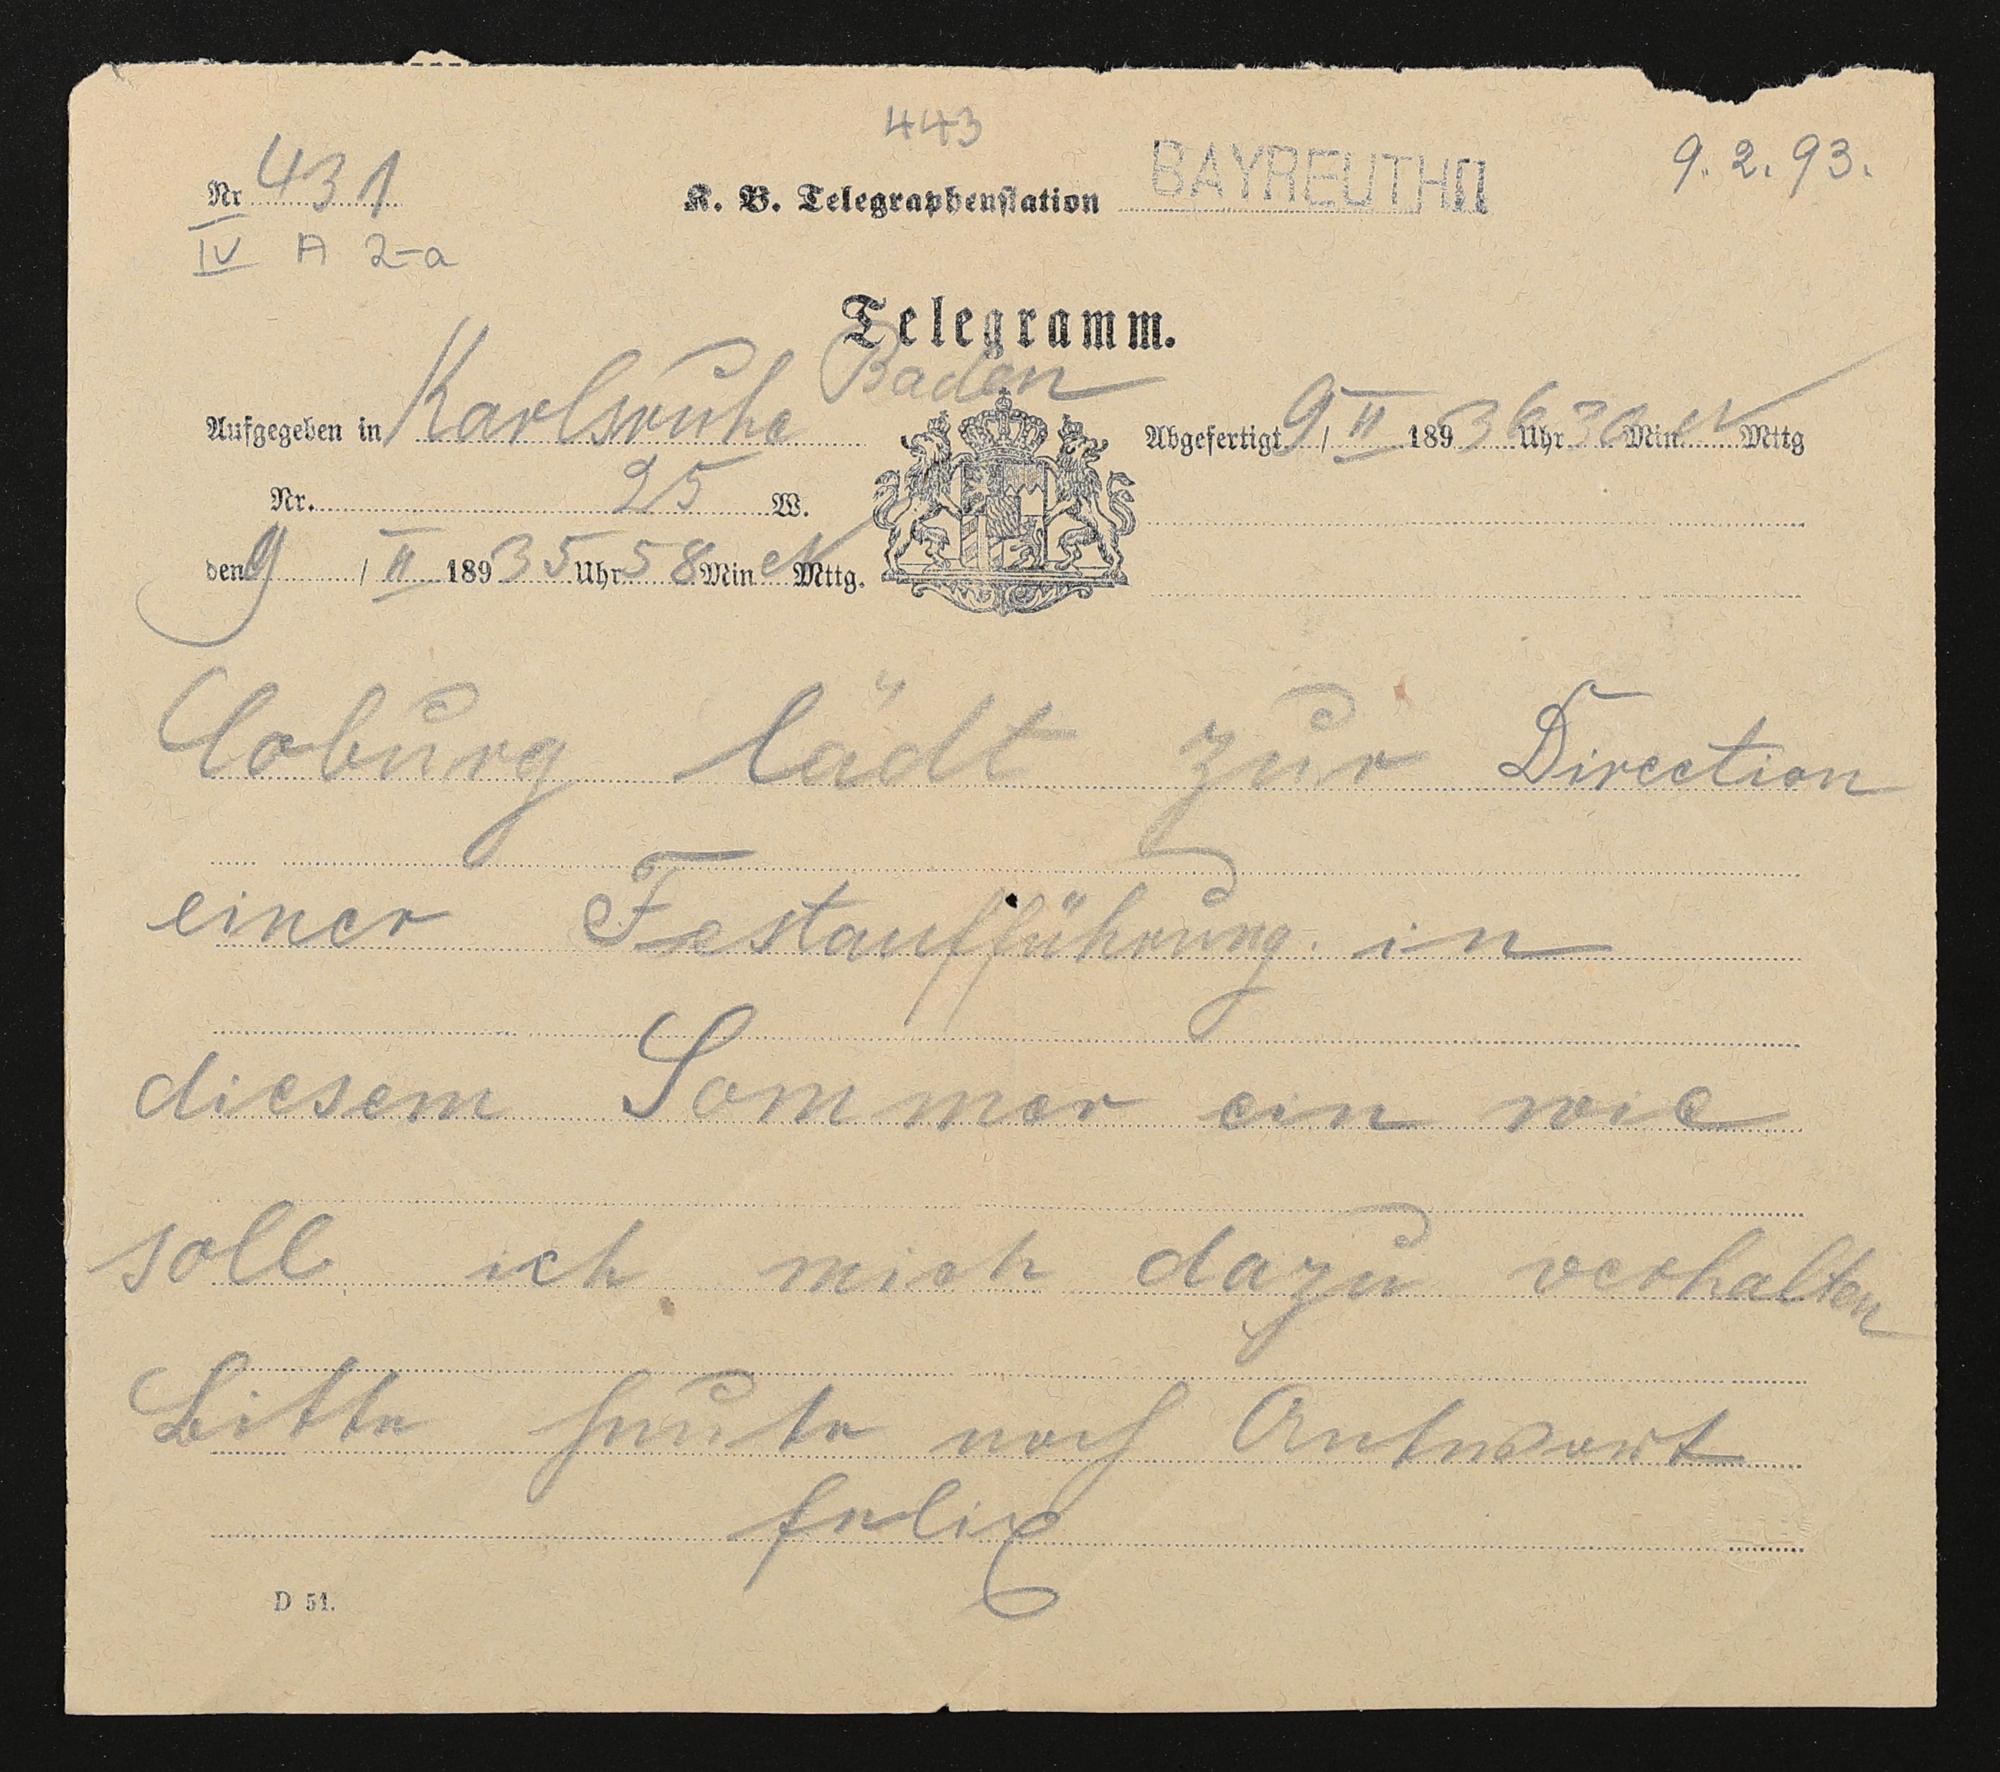 443
Nr 431
K. B. Telegraphenstation BAYREUTH II
9. 2. 93.
IV A 2-a
Telegramm.
Aufgegeben in Karlsruhe Baden
Abgefertigt 9 / II 1893 6 Uhr 30 Min N Mttg
Nr. 25 W.
den 9 / II 1893 5 Uhr 58 Min N Mttg.
Coburg lädt zur Direction
einer Festaufführung in
diesem Sommer ein wie
soll ich mich dazu verhalten
Bitte heute noch Antwort
felix
D 51.